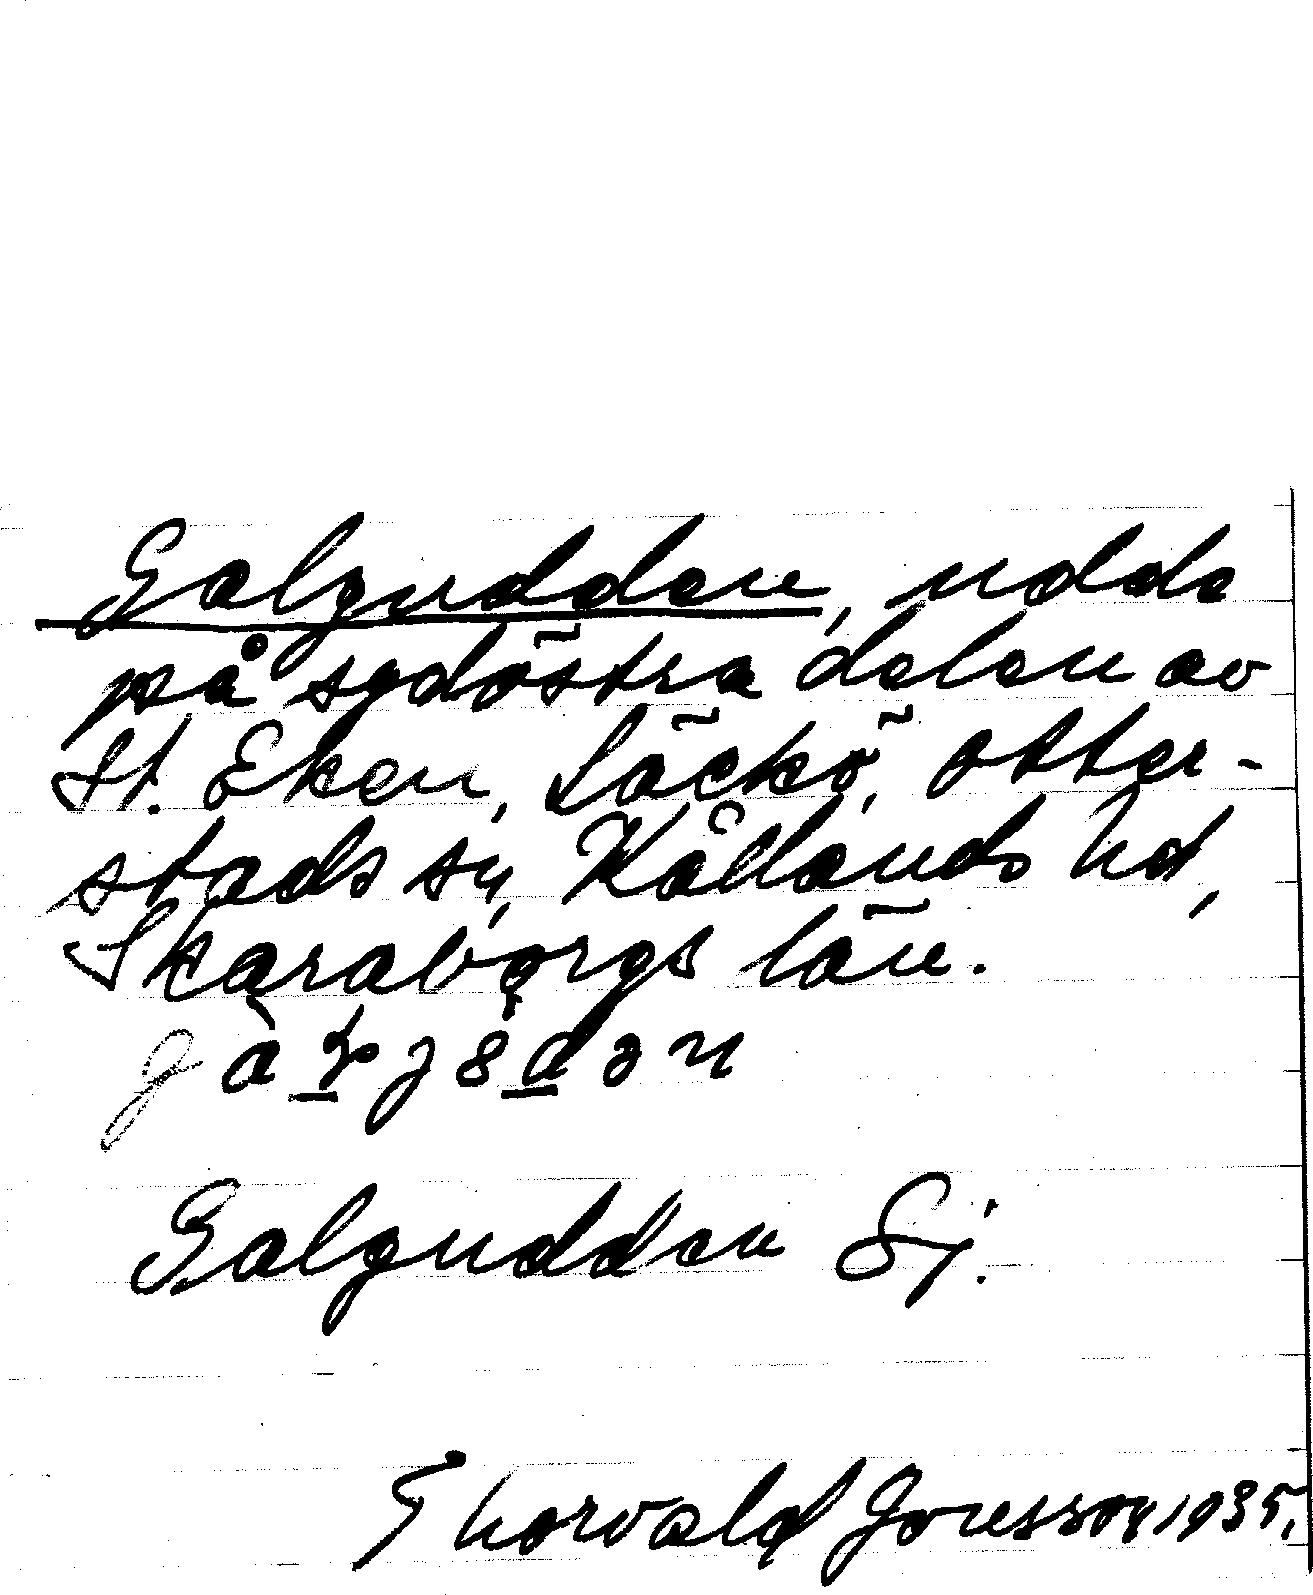 Galgudden, udde
på sydöstra delen av
St. Eken, Läckö, Otter-
stads sn, Kållands hd,
Skaraborgs län.
Galgudden Sj.
Thorvald Jonsson 1935.